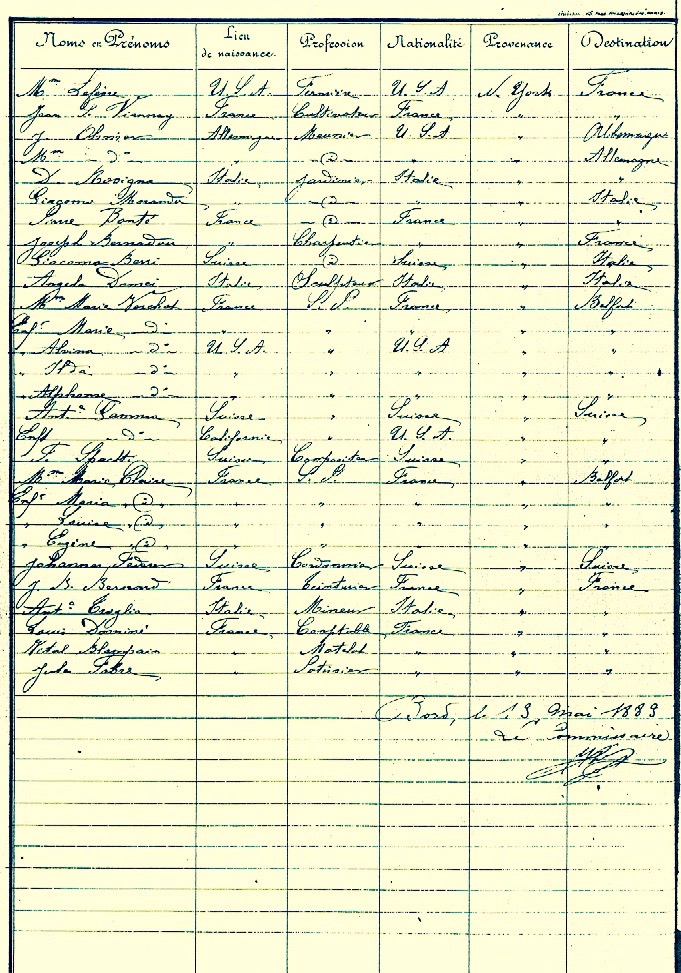 Noms et Prénoms Lieu de naissance Profession Nationalité Provenance Destination
Mme U.S.A. U.S.A N. York France
Jean France Cultivateur France " "
J. Allemagne Meunier U.S.A " Allemagne
Mme - do - " - do - " " Allemagne
D. Italie Jardinier Italie " "
Giacomo " - do - " " Italie
Pierre Bonté France - do - France " "
Joseph Bernadou " Charpentier " " France
Giacomo Berri Suisse do Suisse " Italie
Angelo Italie Sculpteur Italie " Italie
Mme Marie France S. P. France " Belfort
Enft Marie - do - " " " " "
" Alvina - do - U.S.A. " U.S.A " "
" Ida - do - " " " " "
" Alphonse - do - " " " " "
Anto Suisse " Suisse " Suisse
Enft - do - Californie " U.S.A. " "
F. Suisse Suisse " "
Mme Marie Claire France S. P. France " Belfort
Enft Maria " do " " " " " "
" Louise " do " " " " "
" Eugène " do " " " " "
Johannes Suisse Cordonnier Suisse " Suisse
J. B. Bernard France Teinturier France " France
Anto Italie Mineur Italie " "
Louis Dominé France Comptable France " "
Vital " Matelot " " "
Jules Fabre " " " "
Bord, le 13 Mai 1883
Le Commissaire